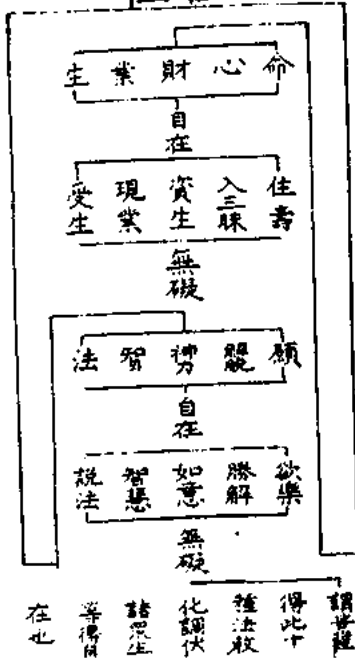 命 心 財 業 生
自在
住壽 入三昧 資生 現業 受生
無礙
願 解 神力 智 法
自在
欲樂 勝解 如意 智慧 說法
無礙
謂菩薩
得此十
種法故
化調伏
諸眾生
等得自
在也